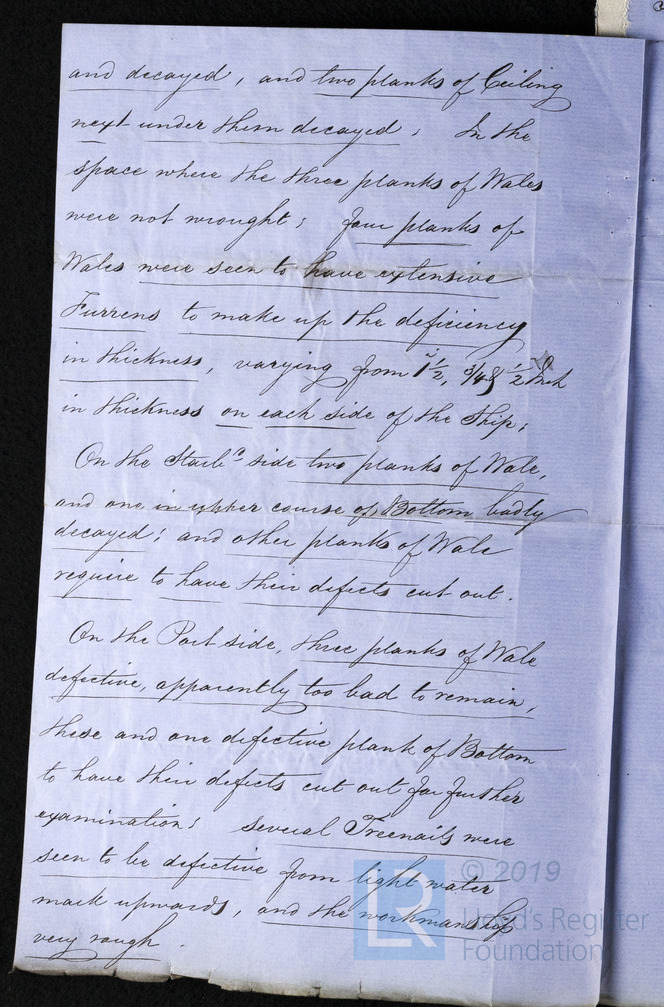 and decayed, and two planks of Ceiling
next under them decayed; In the
space where the three planks of Wales
were not wrought; four planks of
Wales were seen to have extensive
Furrens to make up the deficiency
in thickness, varying from 1½, ¾ & ½ Inch
in thickness on each side of the Ship;
On the Starbd side two planks of Wale,
and one in upper course of Bottom badly
decayed; and other planks of Wale
require to have their defects cut out.
On the Port side, three planks of Wale
defective, apparently too bad to remain,
these and one defective plank of Bottom
to have their defects cut out for further
examination; several Treenails were
seen to be defective from light water
mark upwards, and the workmanship
very rough.
LR
© 2019
Lloyd's Register
Foundation